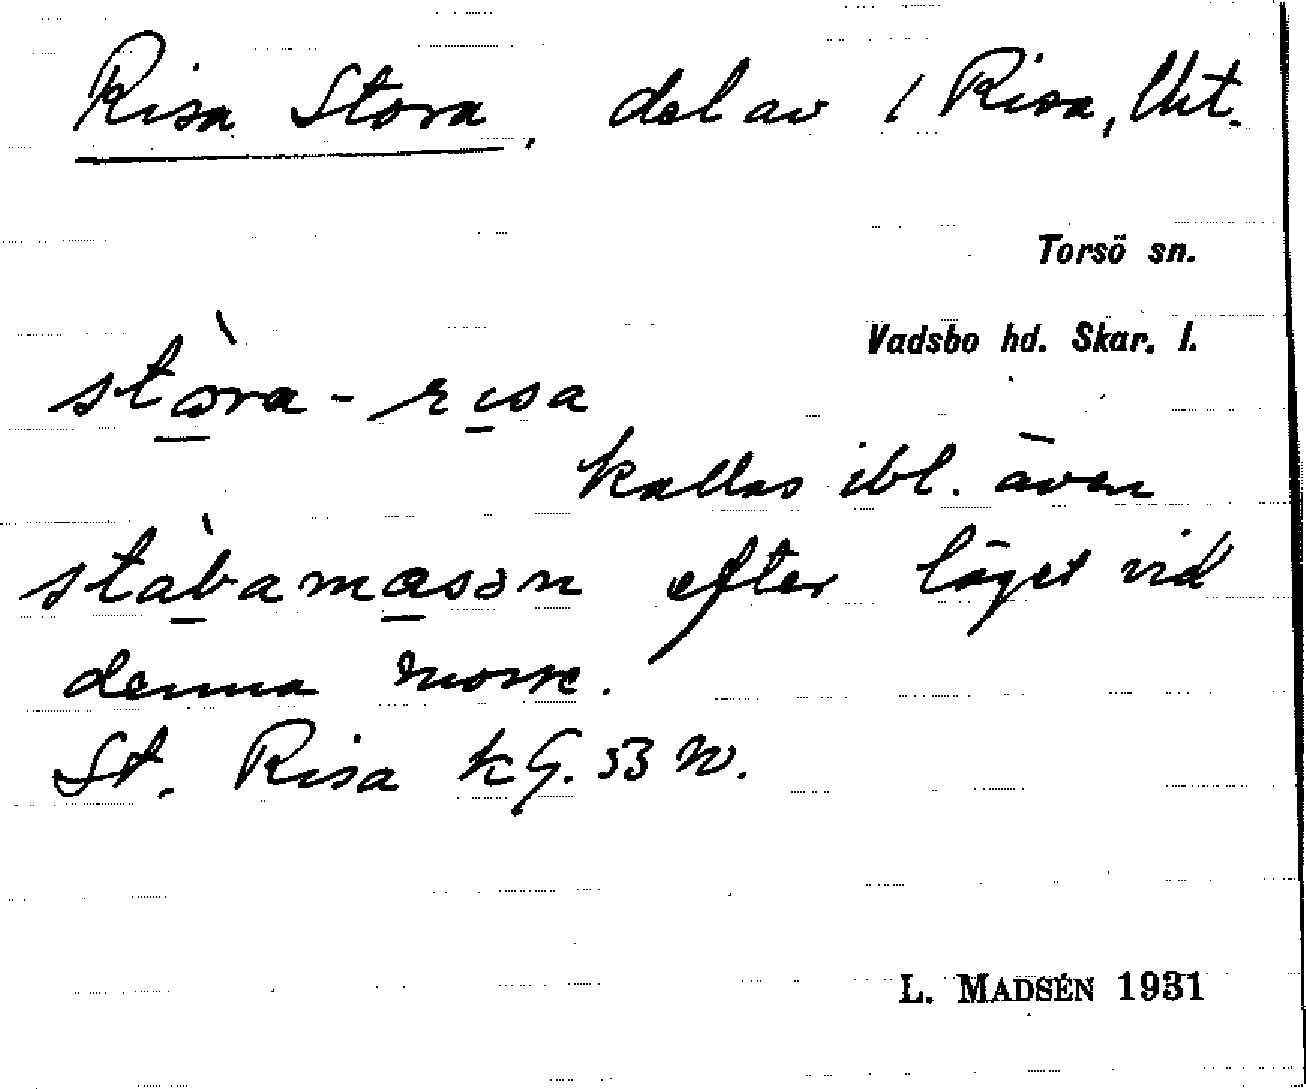 Risa Stora, del av 1 Risa, Utt.
Torsö sn.
Vadsbo hd. Skar. l.
stòra-risa
kallas ibl. även
stàbamasən efter läget vid
denna mosse.
St. Risa kG. 53 N.
L. MADSÉN 1931